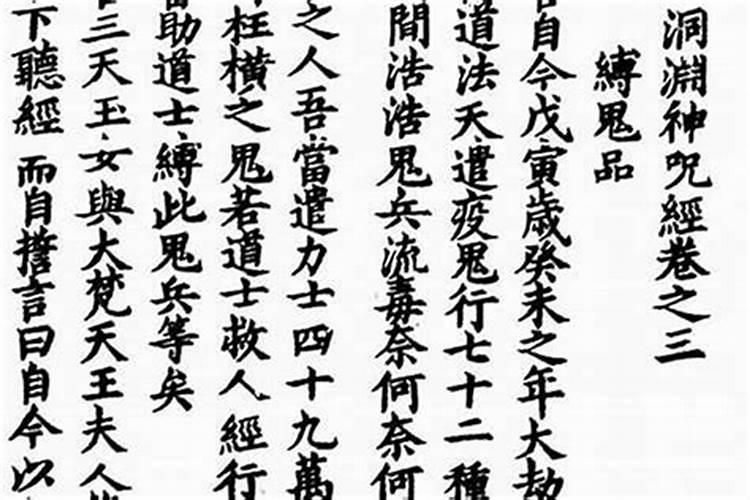 洞淵神呪經卷之三
縛鬼品
自今戊寅歳癸未之年大劫
道法天遣疫鬼行七十二種
間浩浩鬼兵流毒奈何奈何
之人吾當遣力士四十九萬
枉橫之鬼若道士救人經行
助道士縛此鬼兵等矣
三天玉女與大梵天王夫人
下聽經而自誓言曰自今以